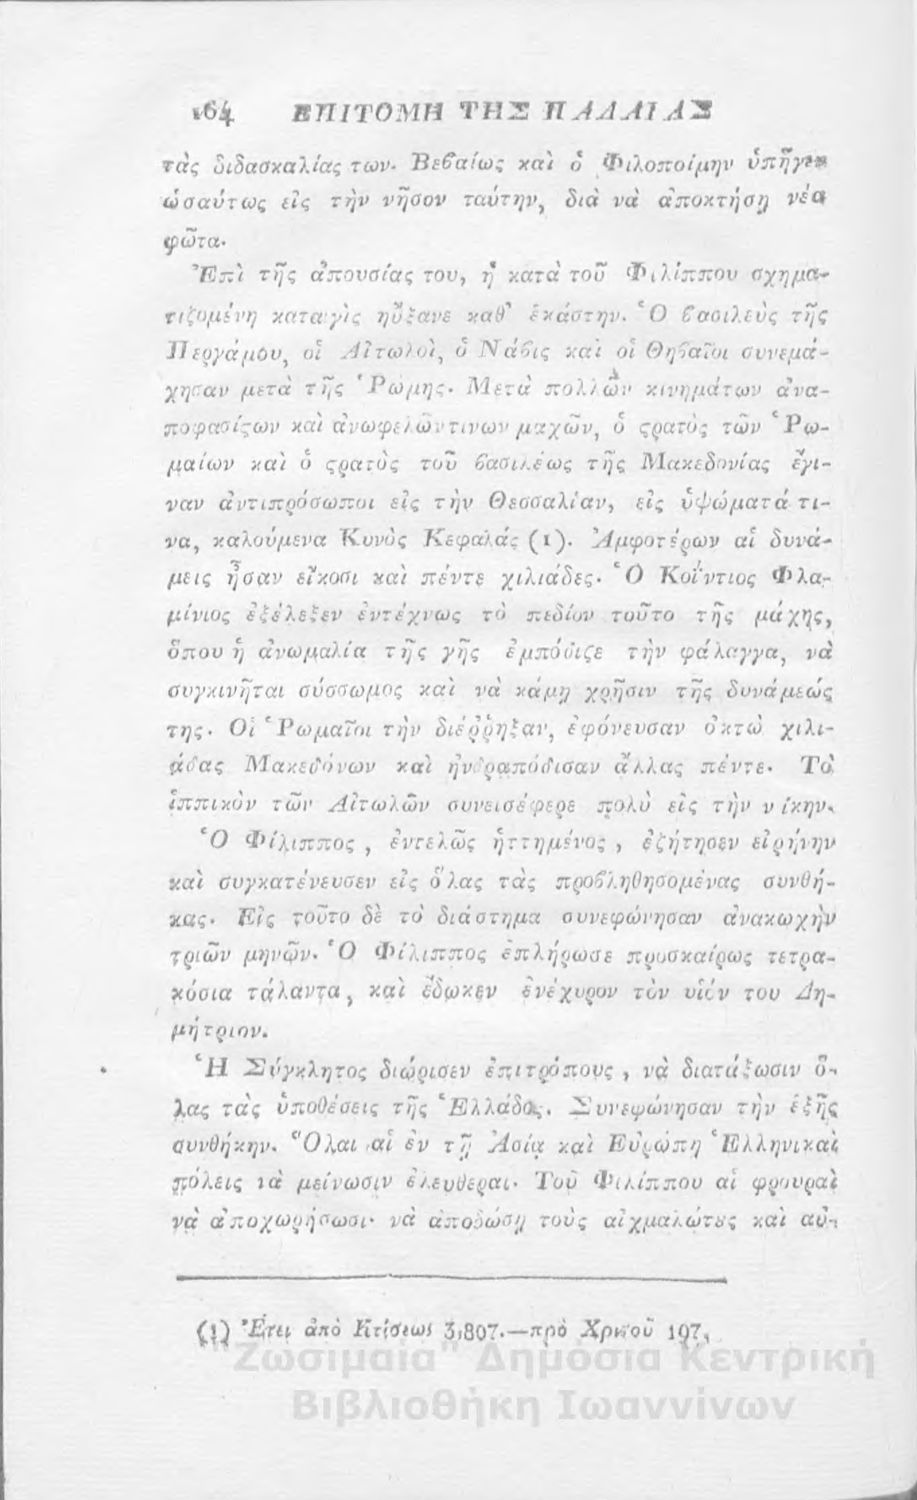 164 ΕΠΙΤΟΜΗ ΤΗΣ ΠΑΛΑΙΑΣ
τὰς διδασκαλίας των· Βεϐαίως καὶ ὁ Φιλοποίμην ὑπῆγεν
ὡσαύτως εἰς τὴν νῆσον ταύτην, διὰ νὰ ἀποκτήσῃ νέα
φῶτα.
Ἐπὶ τῆς ἀπουσίας του, ἡ κατὰ τοῦ Φιλίππου σχημα-
τιζομένη καταιγὶς ηὔξανε καθ' ἑκάστην. Ὁ ϐασιλεὺς τῆς
Περγάμου, οἱ Αἰτωλοὶ, ὁ Νάϐις καὶ οἱ Θηϐαῖοι συνεμά-
χησαν μετὰ τῆς Ῥώμης. Μετὰ πολλῶν κινημάτων ἀνα-
ποφασίςων καὶ ἀνωφελῶν τινων μαχῶν, ὁ ςρατὸς τῶν Ῥω-
μαίων καὶ ὁ ςρατὸς τοῦ ϐασιλέως τῆς Μακεδονίας ἔγι-
ναν ἀντιπρόσωποι εἰς τὴν Θεσσαλίαν, εἰς ὑψώματά τι-
να, καλούμενα Κυνὸς Κεφαλάς (1). Ἀμφοτέρων αἱ δυνά-
μεις ἦσαν εἴκοσι καὶ πέντε χιλιάδες. Ὁ Κοΐντιος Φλα-
μίνιος ἐξέλεξεν ἐντέχνως τὸ πεδίον τοῦτο τῆς μάχης,
ὅπου ἡ ἀνωμαλία τῆς γῆς ἐμπόδιζε τὴν φάλαγγα, νὰ
συγκινῆται σύσσωμος καὶ νὰ κάμῃ χρῆσιν τῆς δυνάμεώς
της. Οἱ Ῥωμαῖοι τὴν διέῤῥηξαν, ἐφόνευσαν ὀκτὼ χιλι-
άδας Μακεδόνων καὶ ἠνδραπόδισαν ἄλλας πέντε. Τὸ
ἱππικὸν τῶν Αἰτωλῶν συνεισέφερε πολὺ εἰς τὴν νίκην.
Ὁ Φίλιππος, ἐντελῶς ἡττημένος, ἐζήτησεν εἰρήνην
καὶ συγκατένευσεν εἰς ὅλας τὰς προϐληθησομένας συνθή-
κας. Εἰς τοῦτο δὲ τὸ διάστημα συνεφώνησαν ἀνακωχὴν
τριῶν μηνῶν. Ὁ Φίλιππος ἐπλήρωσε προσκαίρως τετρα-
κόσια τάλαντα, καὶ ἔδωκεν ἐνέχυρον τὸν υἱόν του Δη-
μήτριον.
Ἡ Σύγκλητος διώρισεν ἐπιτρόπους, νὰ διατάξωσιν ὅ-
λας τὰς ὑποθέσεις τῆς Ἑλλάδος. Συνεφώνησαν τὴν ἑξῆς
συνθήκην. Ὅλαι αἱ ἐν τῇ Ἀσίᾳ καὶ Εὐρώπῃ Ἑλληνικαὶ
πόλεις νὰ μείνωσιν ἐλευθεραι. Τοῦ Φιλίππου αἱ φρουραὶ
νὰ ἀποχωρήσωσι· νὰ ἀποδώσῃ τοὺς αἰχμαλώτȣς καὶ αὐ-
(1) Ἔτει ἀπὸ Κτίσεως 3,807.—πρὸ Χριστοῦ 197.
"Ζωσιμαία" Δημόσια Κεντρική
Βιβλιοθήκη Ιωαννίνων